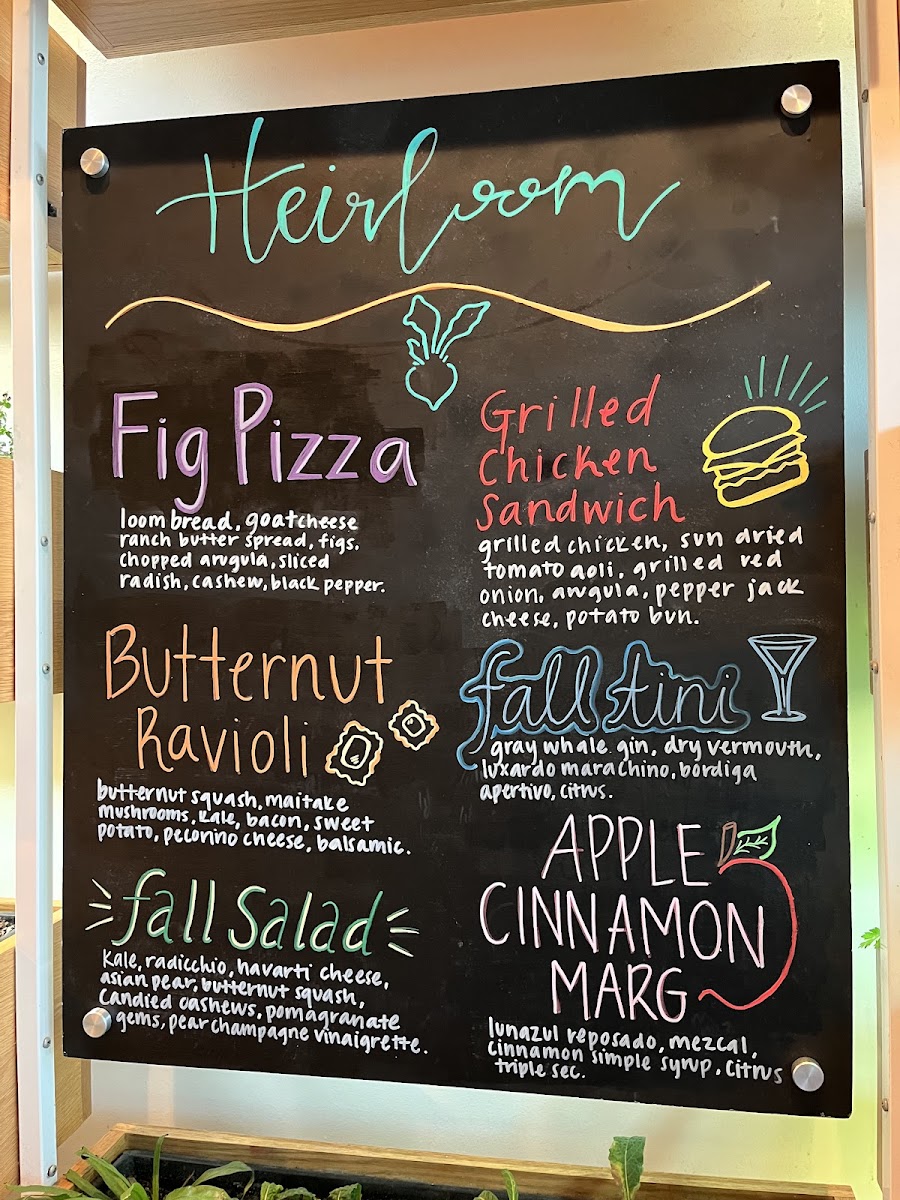 Heirloom
Fig Pizza
loom bread, goat cheese
ranch butter spread, figs.
chopped arugula, sliced
radish, cashew, black pepper.
Butternut
Ravioli
butternut squash, maitake
mushrooms, kale, bacon, sweet
potato, peconino cheese, balsamic.
fall Salad
Kale, radicchio, havarti cheese,
asian pear, butternut squash,
candied cashews, pomagranate
gems, pear champagne vinaigrette.
Grilled
Chicken
Sandwich
grilled chicken, sun dried
tomato aoli, grilled red
onion, arugula, pepper jack
cheese, potato bun.
fall tini
gray whale gin, dry vermouth,
luxardo marachino, bordiga
apertivo, citrus.
APPLE
CINNAMON
MARG
lunazul reposado, mezcal,
cinnamon simple syrup, citrus
triple sec.